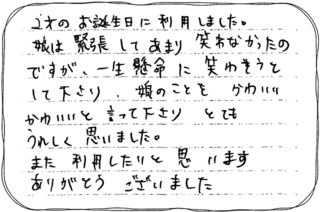 2才のお誕生日に利用しました。
娘は緊張してあまり笑わなかったの
ですが、一生懸命に笑わそうと
して下さり、娘のことを かわいい
かわいいと言って下さり とても
うれしく思いました。
また利用したいと思います
ありがとうございました